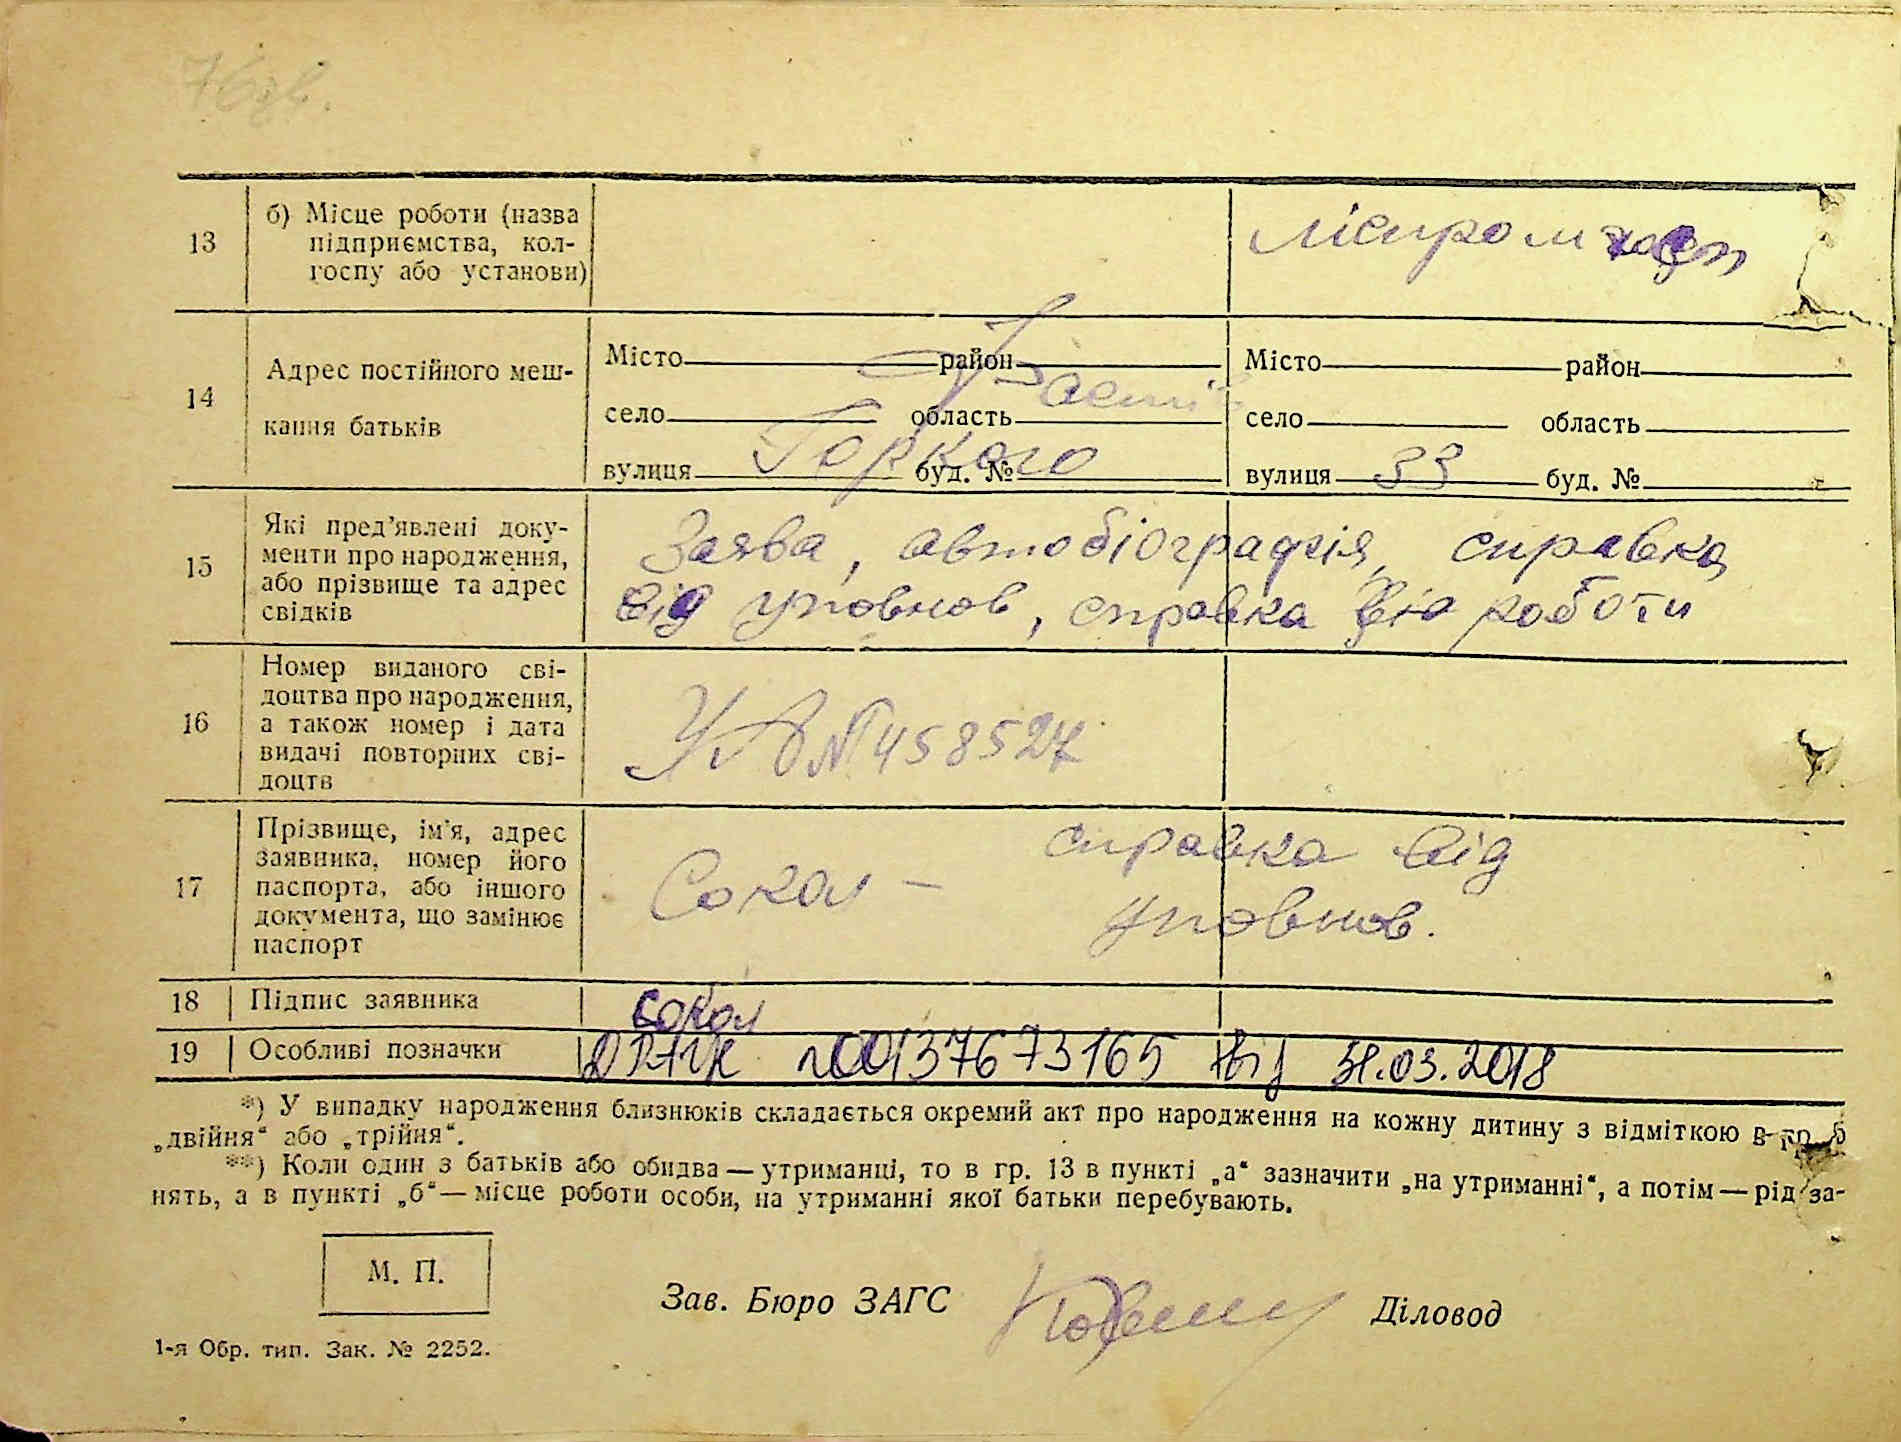 76зв.
13
б) Місце роботи (назва
підприємства, кол-
госпу або установи)
ліспромхоз
14
Адрес постійного меш-
кання батьків
Місто район
село область
вулиця Горкого буд. №
Місто район
село область
вулиця 33 буд. №
15
Які пред’явлені доку-
менти про народження,
або прізвище та адрес
свідків
Заява, автобіографія, справка
від уповнов, справка від роботи
16
Номер виданого сві-
доцтва про народження,
а також номер і дата
видачі повторних сві-
доцтв
УА № 458527
17
Прізвище, ім’я, адрес
заявника, номер його
паспорта, або іншого
документа, що замінює
паспорт
Сокол – справка від
уповнов.
18
Підпис заявника
Сокол
19
Особливі позначки
00137673165 від 31.03.2018
*) У випадку народження близнюків складається окремий акт про народження на кожну дитину з відміткою в гр. 5
„двійня“ або „трійня“.
**) Коли один з батьків або обидва — утриманці, то в гр. 13 в пункті „а“ зазначити „на утриманні“, а потім — рід за-
нять, а в пункті „б“ — місце роботи особи, на утриманні якої батьки перебувають.
М. П.
Зав. Бюро ЗАГС
Діловод
1-я Обр. тип. Зак. № 2252.